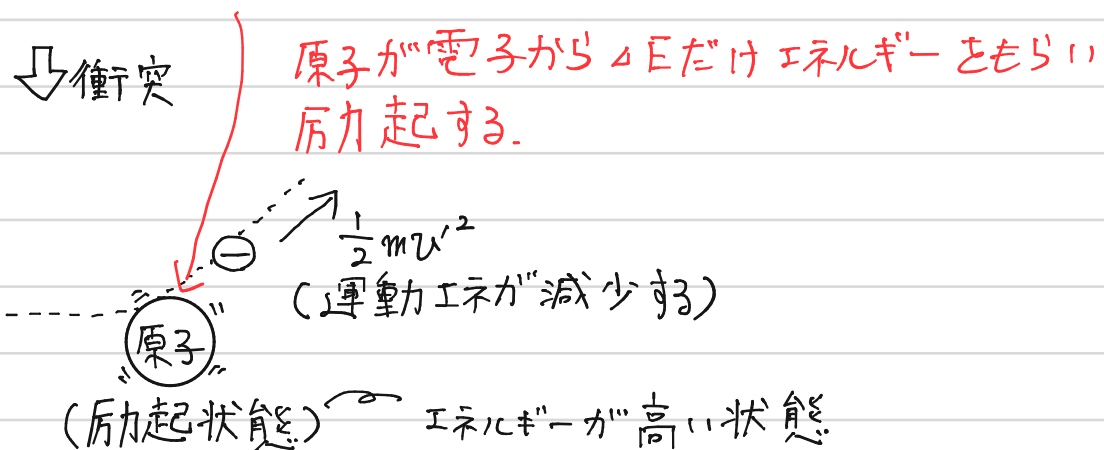 ⇩衝突
原子が電子からΔEだけエネルギーをもらい
励起する.
−
1/2 mv'²
(運動エネが減少する)
原子
(励起状態) エネルギーが高い状態